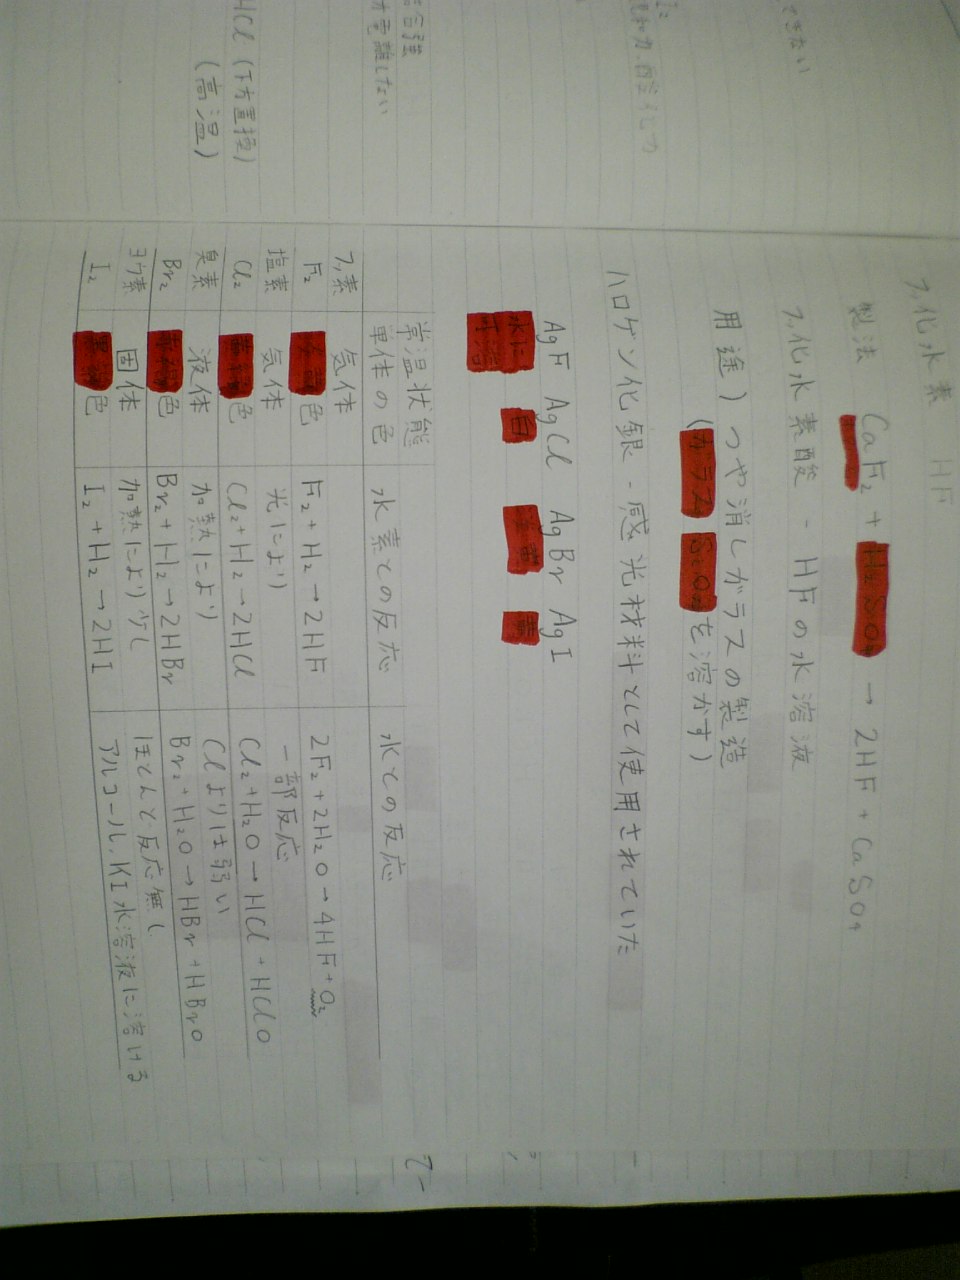 フッ化水素 HF
製法 CaF₂ + H₂SO₄ → 2HF + CaSO₄
フッ化水素酸 - HFの水溶液
用途) つや消しガラスの製造
(ガラス SiO₂を溶かす)
ハロゲン化銀 - 感光材料として使用されていた
AgF AgCl AgBr AgI
水に 白 黄
常温状態 水素との反応 水との反応
単体の色
フッ素 気体 F₂ + H₂ → 2HF 2F₂ + 2H₂O → 4HF + O₂
F₂ 色
塩素 気体 光により 一部反応
Cl₂ 色 Cl₂ + H₂ → 2HCl Cl₂ + H₂O → HCl + HClO
臭素 液体 加熱により Clよりは弱い
Br₂ 色 Br₂ + H₂ → 2HBr Br₂ + H₂O → HBr + HBrO
ヨウ素 固体 加熱により少し ほとんど反応無し
I₂ 色 I₂ + H₂ → 2HI アルコール、KI水溶液に溶ける
できない
電離しない
HCl (下方置換)
(高温)